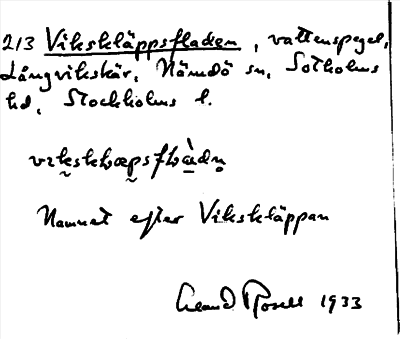 213 Vikskläppsfladen, vattenspegel,
Långvikskär, Nämdö sn, Sotholms
hd, Stockholms l.
Namnet efter Vikskläppan
1933